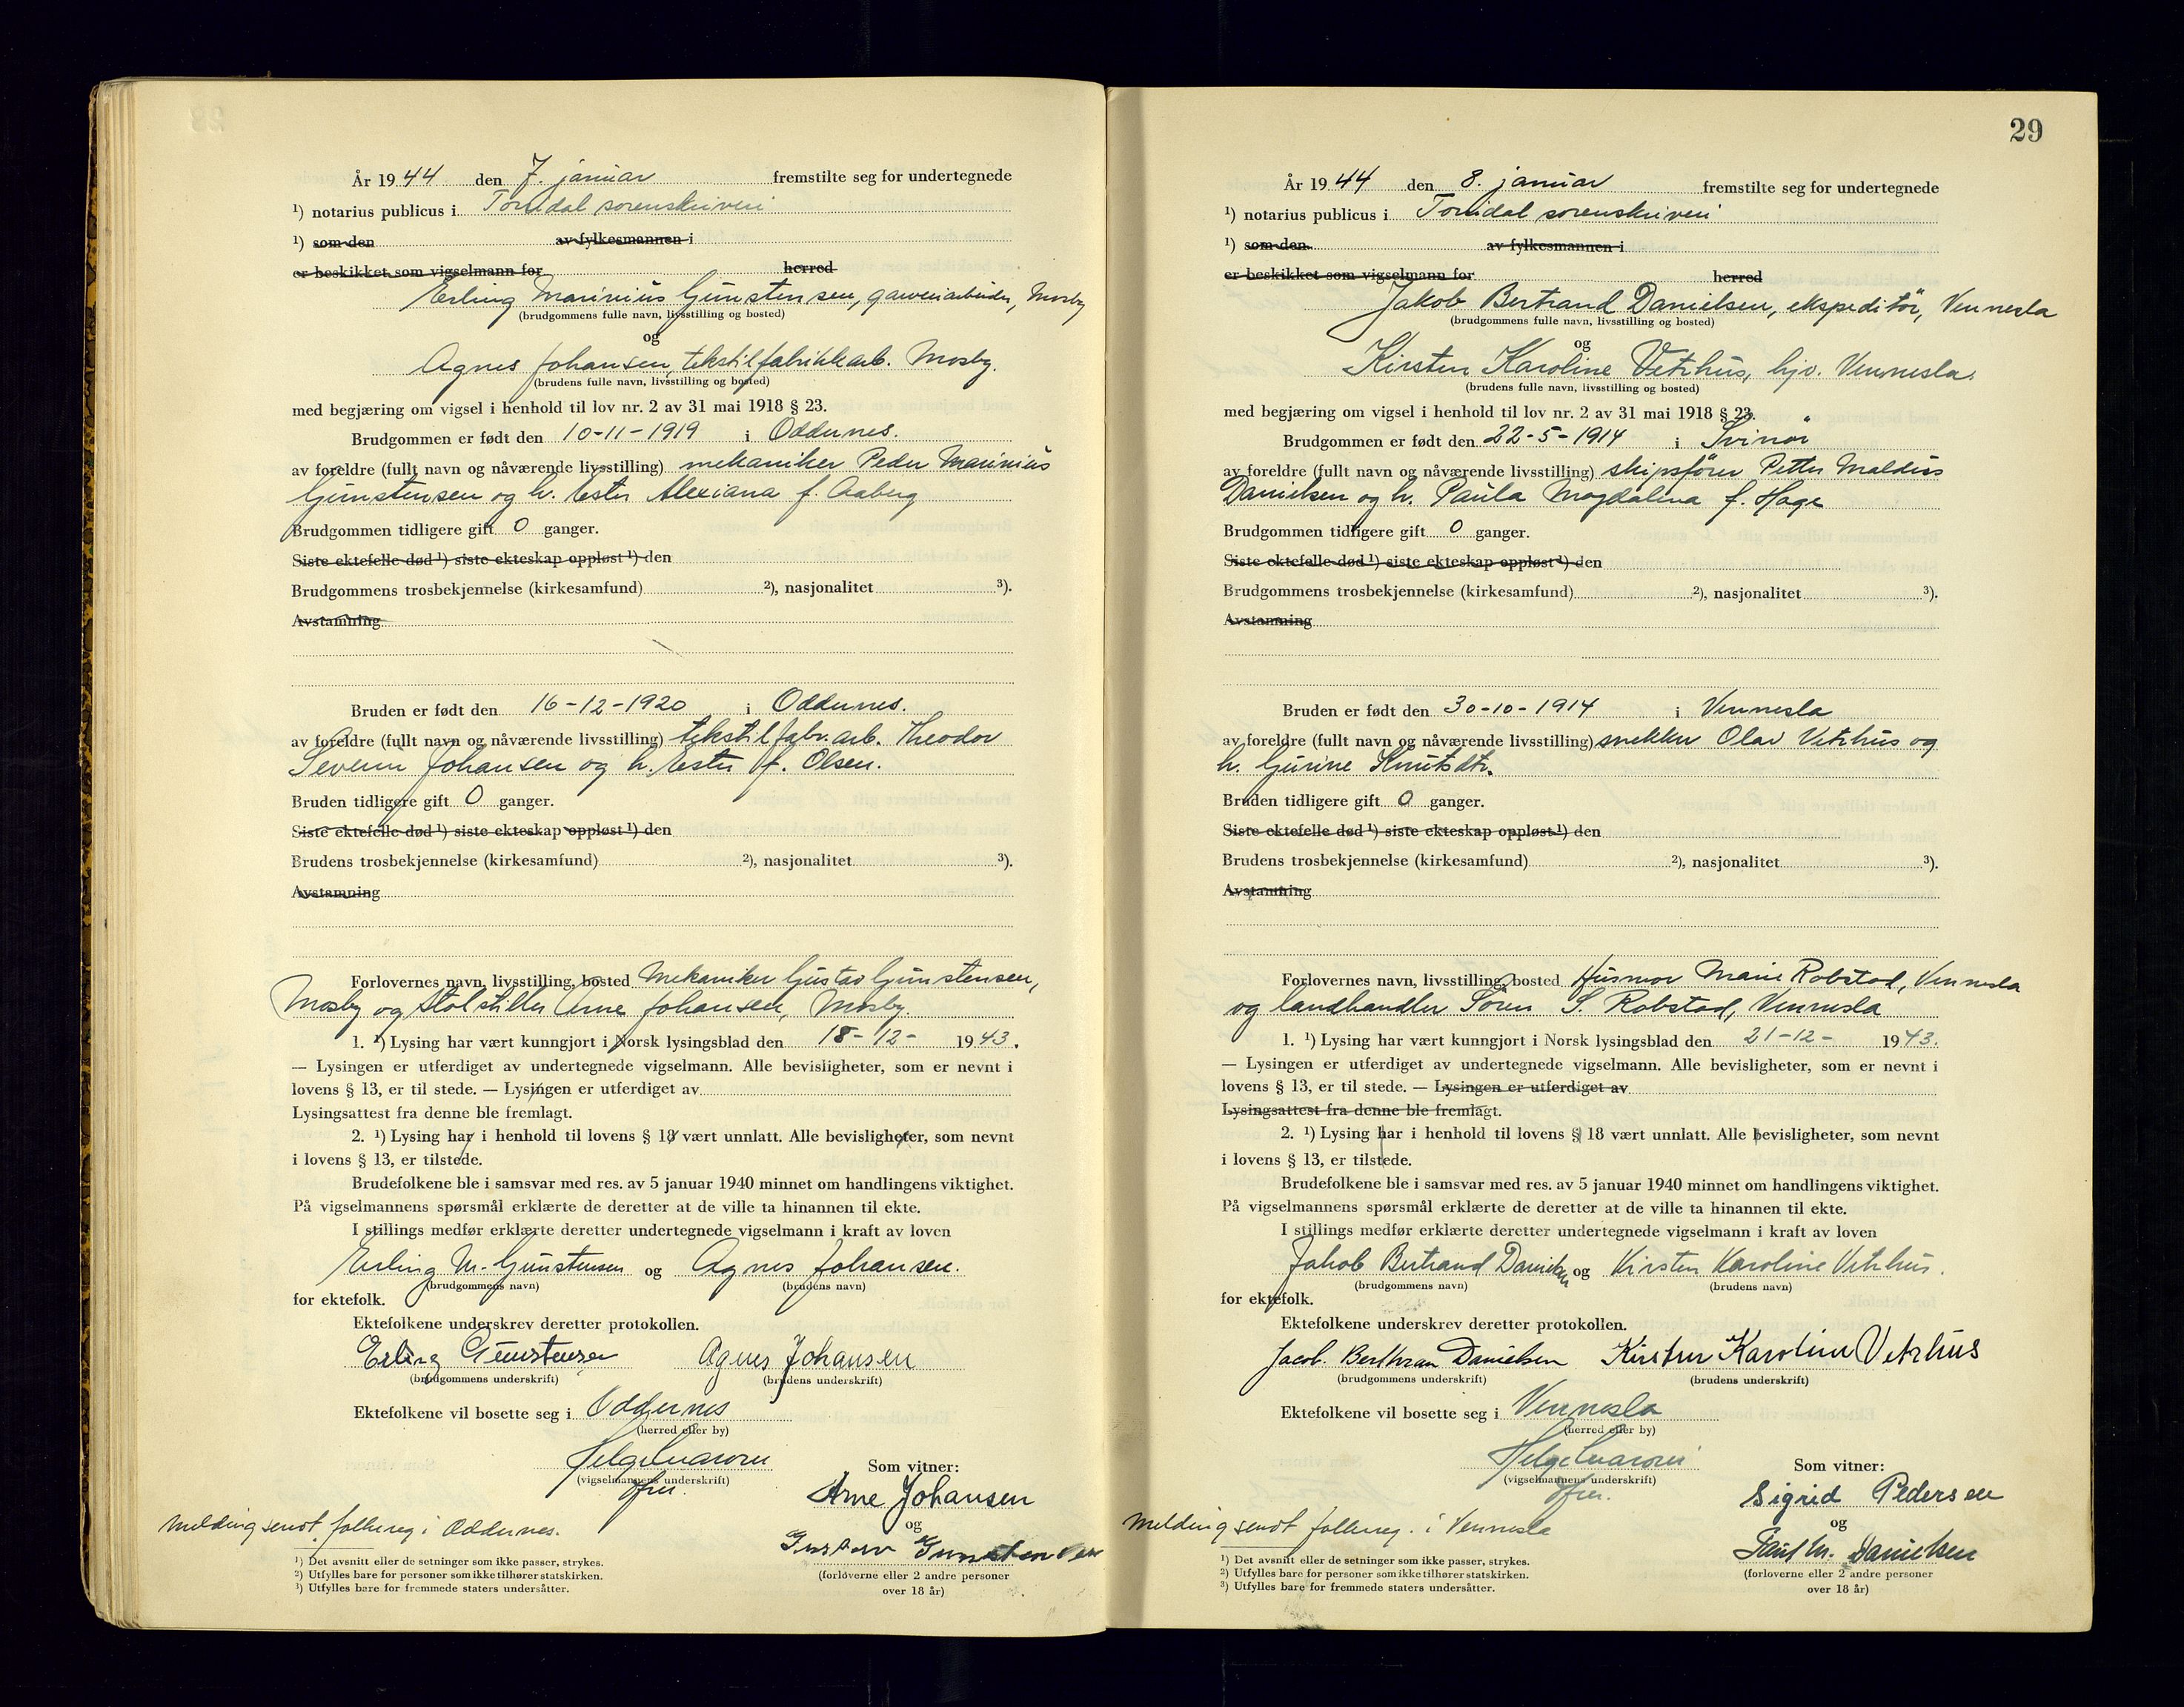 År 1944 den 7. januar fremstilte seg for undertegnede
¹) notarius publicus i Torridal sorenskriveri
¹) som den av fylkesmannen i
er beskikket som vigselmann for herred
Erling Marinius Gunstensen, garveriarbeider, Mosby
(brudgommens fulle navn, livsstilling og bosted)
og
Agnes Johansen, tekstilfabrikkarb. Mosby.
(brudens fulle navn, livsstilling og bosted)
med begjæring om vigsel i henhold til lov nr. 2 av 31 mai 1918 § 23.
Brudgommen er født den 10-11-1919 i Oddernes.
av foreldre (fullt navn og nåværende livsstilling) mekaniker Peder Marinius
Gunstensen og h. Ester Alexiana f. Aaberg
Brudgommen tidligere gift 0 ganger.
Siste ektefelle død ¹) siste ekteskap oppløst ¹) den
Brudgommens trosbekjennelse (kirkesamfund) ²), nasjonalitet ³).
Avstamning
Bruden er født den 16-12-1920 i Oddernes.
av foreldre (fullt navn og nåværende livsstilling) tekstilfabr.arb. Theodor
Severin Johansen og h. Ester f. Olsen.
Bruden tidligere gift 0 ganger.
Siste ektefelle død ¹) siste ekteskap oppløst ¹) den
Brudens trosbekjennelse (kirkesamfund) ²), nasjonalitet ³).
Avstamning
Forlovernes navn, livsstilling, bosted Mekaniker Gustav Gunstensen,
Mosby og stolstiller Arne Johansen, Mosby.
1. ¹) Lysing har vært kunngjort i Norsk lysingsblad den 18-12- 1943.
— Lysingen er utferdiget av undertegnede vigselmann. Alle bevisligheter, som er nevnt i
lovens § 13, er til stede. — Lysingen er utferdiget av
Lysingsattest fra denne ble fremlagt.
2. ¹) Lysing har i henhold til lovens § 18 vært unnlatt. Alle bevisligheter, som nevnt
i lovens § 13, er tilstede.
Brudefolkene ble i samsvar med res. av 5 januar 1940 minnet om handlingens viktighet.
På vigselmannens spørsmål erklærte de deretter at de ville ta hinannen til ekte.
I stillings medfør erklærte deretter undertegnede vigselmann i kraft av loven
Erling M. Gunstensen og Agnes Johansen.
(brudgommens navn) (brudens navn)
for ektefolk.
Ektefolkene underskrev deretter protokollen.
Erling Gunstensen Agnes Johansen
(brudgommens underskrift) (brudens underskrift)
Ektefolkene vil bosette seg i Oddernes
(herred eller by)
(vigselmannens underskrift)
Som vitner:
Arne Johansen
og
Gustav Gunstensen
(forloverne eller 2 andre personer
over 18 år)
Melding sendt folkereg. i Oddernes.
¹) Det avsnitt eller de setninger som ikke passer, strykes.
²) Utfylles bare for personer som ikke tilhører statskirken.
³) Utfylles bare for fremmede staters undersåtter.
29
År 1944 den 8. januar fremstilte seg for undertegnede
¹) notarius publicus i Torridal sorenskriveri
¹) som den av fylkesmannen i
er beskikket som vigselmann for herred
Jakob Bertrand Danielsen, ekspeditör, Vennesla
(brudgommens fulle navn, livsstilling og bosted)
og
Kirsten Karoline Vetrhus, hjv. Vennesla.
(brudens fulle navn, livsstilling og bosted)
med begjæring om vigsel i henhold til lov nr. 2 av 31 mai 1918 § 23.
Brudgommen er født den 22-5-1914 i Svinör
av foreldre (fullt navn og nåværende livsstilling) skipsförer Petter Maldius
Danielsen og h. Paula Magdalena f. Hage
Brudgommen tidligere gift 0 ganger.
Siste ektefelle død ¹) siste ekteskap oppløst ¹) den
Brudgommens trosbekjennelse (kirkesamfund) ²), nasjonalitet ³).
Avstamning
Bruden er født den 30-10-1914 i Vennesla
av foreldre (fullt navn og nåværende livsstilling) snekker Olav Vetrhus og
h. Gurine Knutsdtr.
Bruden tidligere gift 0 ganger.
Siste ektefelle død ¹) siste ekteskap oppløst ¹) den
Brudens trosbekjennelse (kirkesamfund) ²), nasjonalitet ³).
Avstamning
Forlovernes navn, livsstilling, bosted Husmor Marie Robstad, Vennesla
og landhandler Sören S. Robstad, Vennesla
1. ¹) Lysing har vært kunngjort i Norsk lysingsblad den 21-12- 1943.
— Lysingen er utferdiget av undertegnede vigselmann. Alle bevisligheter, som er nevnt i
lovens § 13, er til stede. — Lysingen er utferdiget av
Lysingsattest fra denne ble fremlagt.
2. ¹) Lysing har i henhold til lovens § 18 vært unnlatt. Alle bevisligheter, som nevnt
i lovens § 13, er tilstede.
Brudefolkene ble i samsvar med res. av 5 januar 1940 minnet om handlingens viktighet.
På vigselmannens spørsmål erklærte de deretter at de ville ta hinannen til ekte.
I stillings medfør erklærte deretter undertegnede vigselmann i kraft av loven
Jakob Bertrand Danielsen og Kirsten Karoline Vetrhus.
(brudgommens navn) (brudens navn)
for ektefolk.
Ektefolkene underskrev deretter protokollen.
Jacob. Berthran Danielsen Kirsten Karoline Vetrhus
(brudgommens underskrift) (brudens underskrift)
Ektefolkene vil bosette seg i Vennesla
(herred eller by)
(vigselmannens underskrift)
Som vitner:
Sigrid Pedersen
og
Paul M. Danielsen
(forloverne eller 2 andre personer
over 18 år)
Melding sendt folkereg. i Vennesla
¹) Det avsnitt eller de setninger som ikke passer, strykes.
²) Utfylles bare for personer som ikke tilhører statskirken.
³) Utfylles bare for fremmede staters undersåtter.